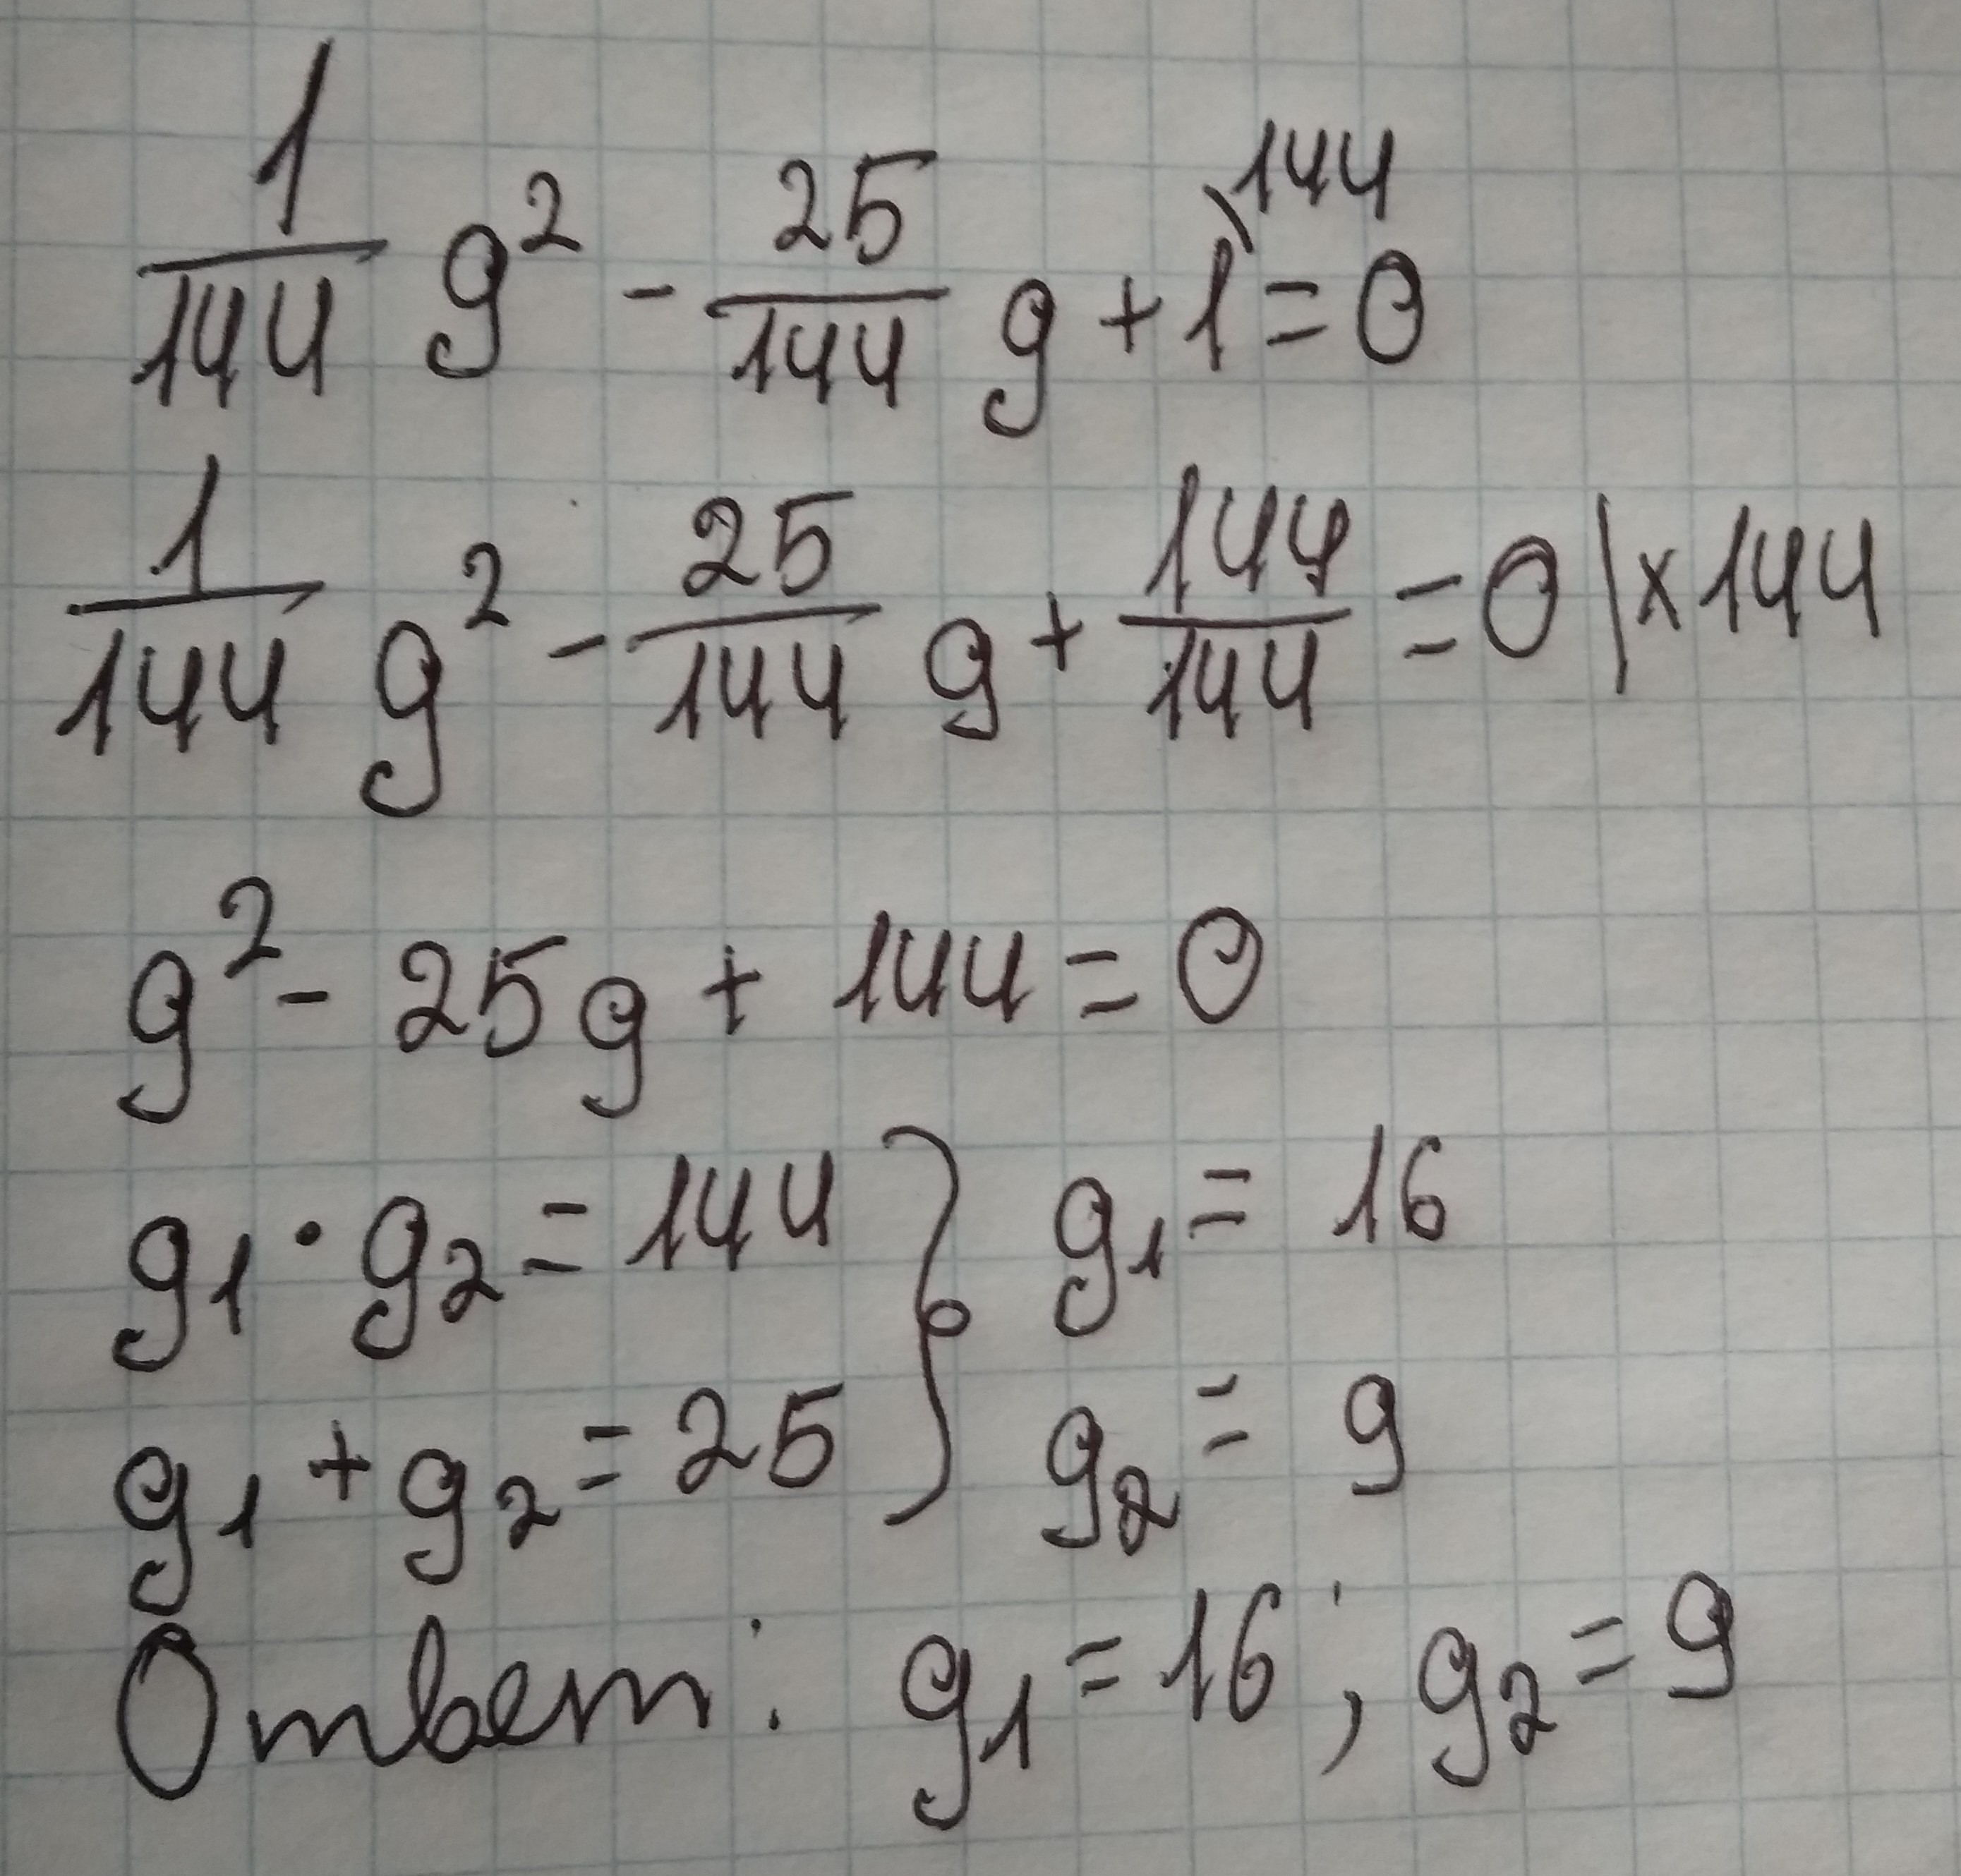 1/144 g² - 25/144 g + 1\144 = 0
1/144 g² - 25/144 g + 144/144 = 0 | × 144
g² - 25g + 144 = 0
g₁ · g₂ = 144 } g₁ = 16
g₁ + g₂ = 25 } g₂ = 9
Ответ: g₁ = 16; g₂ = 9